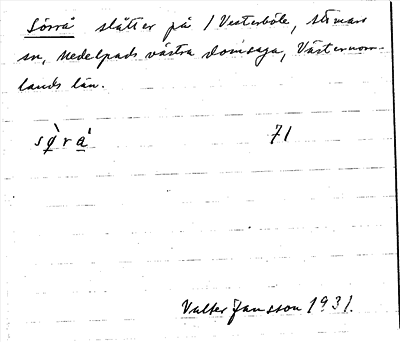 Sörrå slåtter på 1 Vesterböle, Stönar
sn, Medelpads västra domsaga, Västernorr-
lands län.
sø̀rá 71
Valter Jansson 1931.